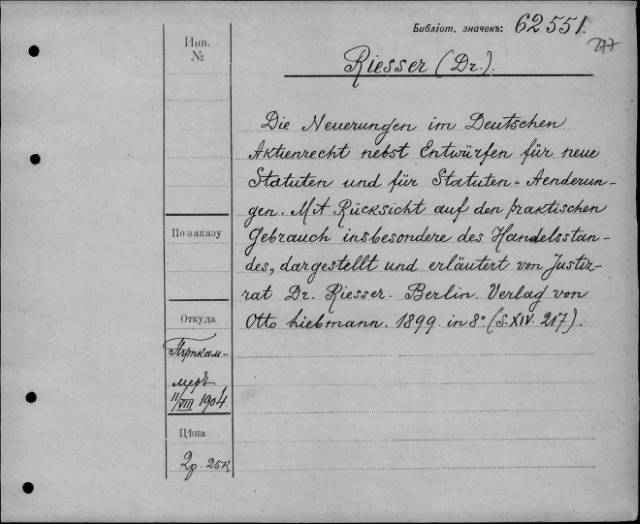 Бібліот. значекъ: 62551.
277
Инв.
№
Riesser (Dr.).
Die Neuerungen im Deutschen
Aktienrecht nebst Entwürfen für neue
Statuten und für Statuten=Aenderun-
gen. Mit Rücksicht auf den praktischen
По заказу
Gebrauch insbesondere des Handelsstan-
des, dargestellt und erläutert von Justiz-
rat Dr. Riesser. Berlin. Verlag von
Откуда
Otto Liebmann. 1899. in 8° (S. XIV. 217).
Путкам-
меръ
11/VIII 1904
Цѣна
2р. 25к